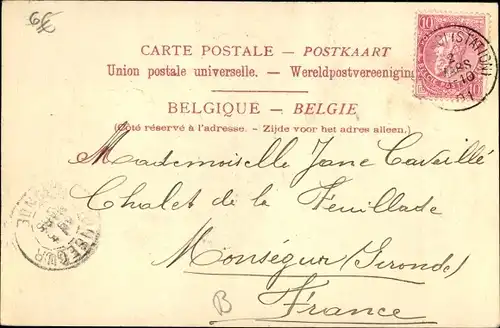 CARTE POSTALE — POSTKAART
Union postale universelle. — Wereldpostvereeniging
BELGIQUE — BELGIE
(Côté réservé à l'adresse. - Zijde voor het adres alleen.)
10
(STATION)
Mademoiselle Jane Cavaillé
Chalet de la Feuillade
Monségur (Gironde)
France
B